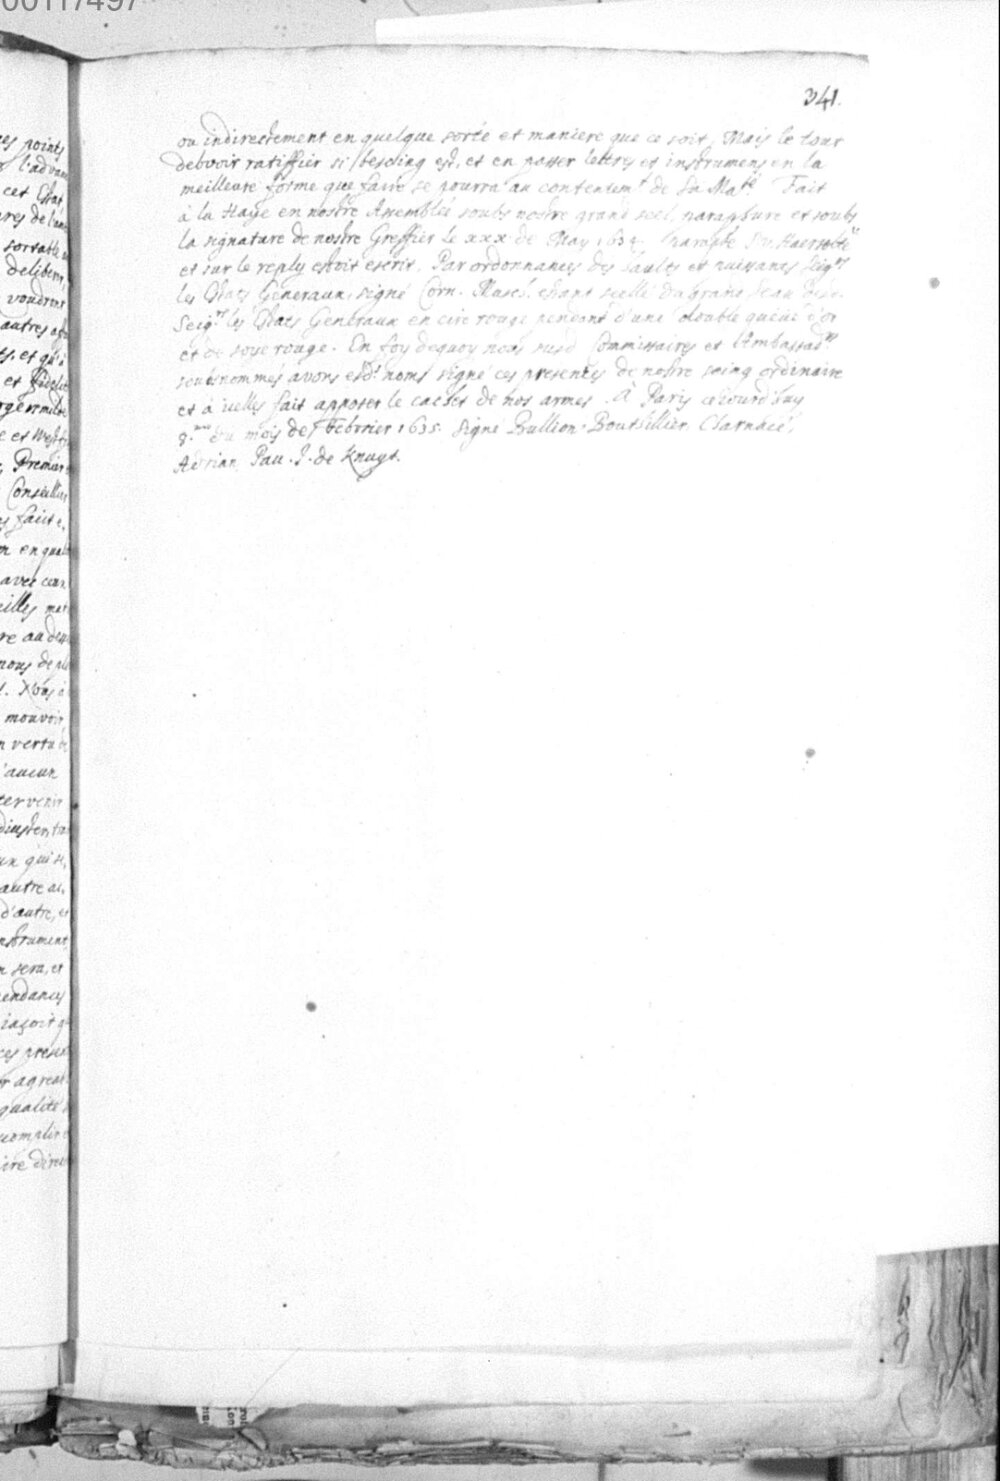 00117497
341.
ou indirectement en quelque sorte et maniere que ce soit, Mais le tout
debvoir ratiffier si besoing est, et en passer lettres et instrumens en la
meilleure forme que faire se pourra au contentem.t de Sa Ma.té Fait
à la Haye en nostre Assemblée soubs nostre grand seel, paraphure et soubs
la signature de nostre Greffier le xxx de May 1634. Paraphé Haersolte
et sur le reply estoit escrit, Par ordonnances des haults et puissants Seig.rs
les Estats Generaux, signé Corn. Musch. estant seellé du grand Seau
Seig.rs les Estats Generaux en cire rouge pendant d'une double queue d'or
et de soye rouge. En foy dequoy nous susd. Commissaires et Ambassad.rs
soubsnommés avons esd.s noms signé ces presentes de nostre seing ordinaire
et à icelles fait apposer le cachet de nos armes. À Paris cejourd'huy
8.me du mois de Febvrier 1635. Signé Bullion. Bouthillier. Charnacé.
Adrian Pau. J. de Knuyt.
es points
l'advan
cet Estat
sortable
deliberer
voudront
autres
et qu'
et fidelit
et West
Premier
Conseillier
faict
en qual
avec ceux
eilles
re au dess
nous de
mouvoir
n vertu de
d'aucun
tervenir
un qui s
autre
d'autre, et
nstrument
n sera, et
endances
jaçoit q
ces presen
r agrea
qualité
ccomplir
ire direc